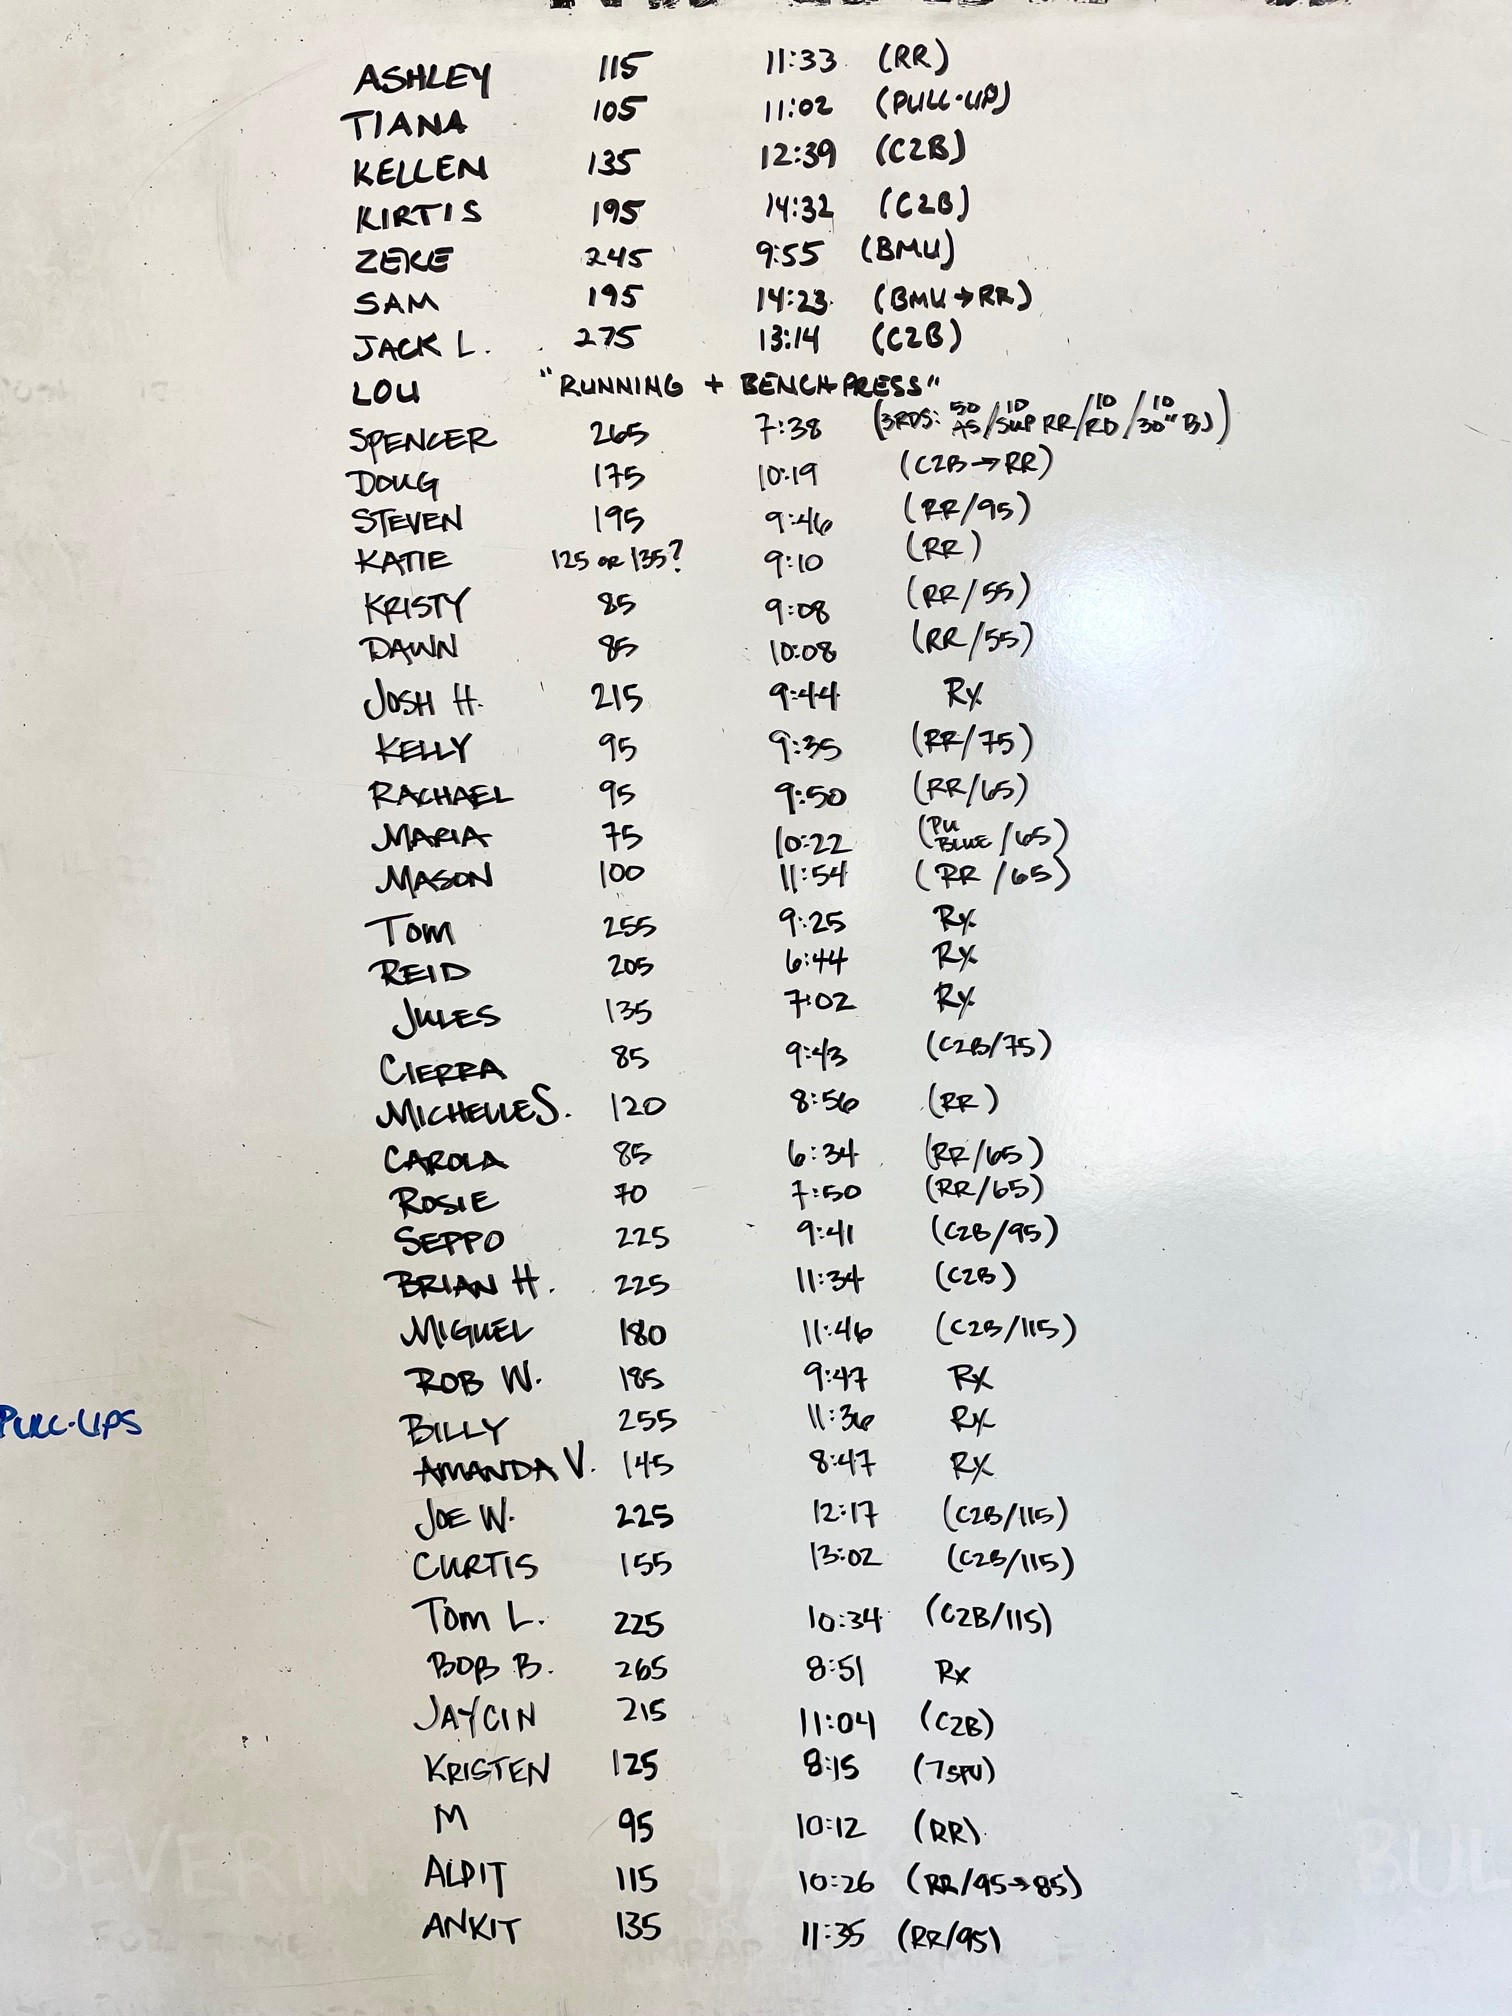 ASHLEY 115 11:33 (RR)
TIANA 105 11:02 (PULL-UP)
KELLEN 135 12:39 (C2B)
KIRTIS 195 14:32 (C2B)
ZEKE 245 9:55 (BMU)
SAM 195 14:23 (BMU→RR)
JACK L. 275 13:14 (C2B)
LOU "RUNNING + BENCH PRESS"
SPENCER 265 7:38 (3RDS: 50 AS/10 SUP RR/10 RD/10 30" BJ)
DOUG 175 10:19 (C2B→RR)
STEVEN 195 9:46 (RR/95)
KATIE 125 OR 135? 9:10 (RR)
KRISTY 85 9:08 (RR/55)
DAWN 85 10:08 (RR/55)
JOSH H. 215 9:44 Rx
KELLY 95 9:35 (RR/75)
RACHAEL 95 9:50 (RR/65)
MARIA 75 10:22 (PU BLUE/65)
MASON 100 11:54 (RR/65)
TOM 255 9:25 Rx
REID 205 6:44 Rx
JULES 135 7:02 Rx
CIERRA 85 9:43 (C2B/75)
MICHELLE S. 120 8:56 (RR)
CAROLA 85 6:34 (RR/65)
ROSIE 70 7:50 (RR/65)
SEPPO 225 9:41 (C2B/95)
BRIAN H. 225 11:34 (C2B)
MIGUEL 180 11:46 (C2B/115)
ROB W. 185 9:47 RX
PULL-UPS
BILLY 255 11:36 Rx
AMANDA V. 145 8:47 RX
JOE W. 225 12:17 (C2B/115)
CURTIS 155 13:02 (C2B/115)
TOM L. 225 10:34 (C2B/115)
BOB B. 265 8:51 Rx
JAYCIN 215 11:04 (C2B)
KRISTEN 125 8:15 (7SPU)
M 95 10:12 (RR)
SEVERIN JACK BUL
ALPIT 115 10:26 (RR/95→85)
ANKIT 135 11:35 (RR/95)